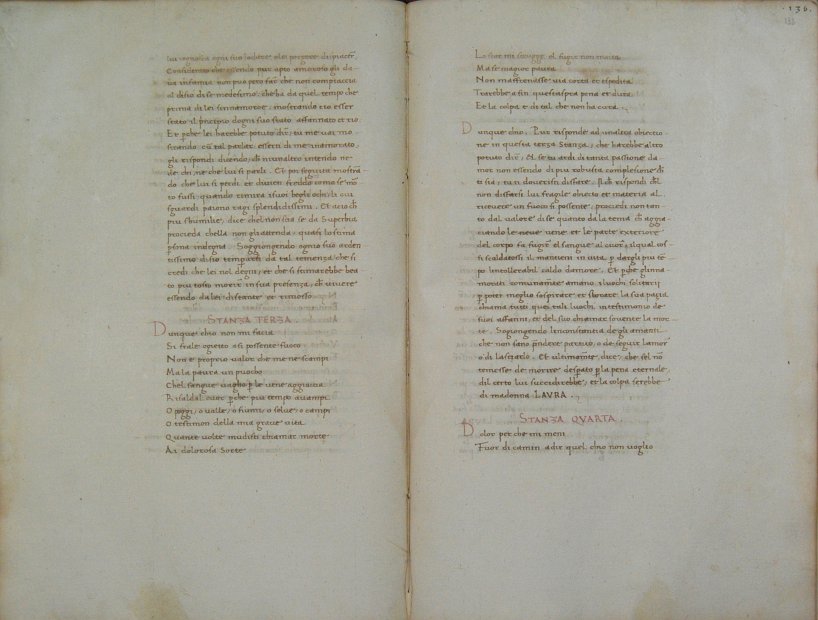 lui ognialtra ogni suo lodare e lei porgere dispiacer.
Considerato che essendo pur apto amoroso gli da
ua infamia non puo pero far che non compiaccia
al disio di se medesimo, che ha da quel tempo che
prima di lei sinnamoroe, mostrando cio esser
stato il principio dogni suo stato affannato et rio.
Et perche lei harebbe potuto dire, tu me uai mo
strando cū tal parlar, esserti di me inamorato,
gli rispondi dicendo, ch
le chi ne che lui si parli. Et poi seguita mostrā
do che lui si perde et diuien freddo como se
to fussi, quando rimira i suoi begli ochi, li cui
sguardi paiono ragi splendidissimi. Et acio ch
piu shumilie, dice chel non sia se da Superbia
proceda chella non gli attenda, quasi lo stima
psona indegna. Soggiongendo ognio suo arden
tissimo disio temprarsi da tal temenza, che si
credi che lei nol degni, et che si stimarebbe bea
to piu tosto morir in sua presenza, ch uiuere
essendo da lei distante et rimosso.
STANZA TERZA.
Dunque chio non mi sfacia
Si frale ogietto a si possente fuoco
Non e proprio ualor che me ne scampi
Ma la paura un pocho
Chel sangue uagho p le uene aggiaccia
Risaldal cuor pche piu tempo auampi
O poggi, o ualle, o fiumi, o selue, o campi
O testimon della mia graue uita
Quante uolte mudisti chiamar morte
Ai dolorosa Sorte
136.
133
Lo star mi strugge, el fugir non maita
Ma se magior paura
Non maffrenasse, uia corta et espedita
Trarebbe a fin questaspra pena et dura
Et la colpa e di tal che non ha cura.
Dunque chio. Par risponde ad unaltra obiectio
ne in questa terza Stanza, che harebbe altro
potuto dire, Et se tu ardi di tanta passione da
mor non essendo di piu robusta complesione ch
ti sia, tu ti doueresti disfare. Al che rispondi chel
non disfarsi lui fragile obiecto et materia al
riceuer un fuoco si possente, procedi non tan
to dal ualore di se quanto da la tema ch aggia
ciando le neue uene, et le parte exteriore
del corpo fa fugire el sangue al cuore, il qual cosi
fi scaldatosi il mantien in uita, p dargli piu tē
po intollerabil caldo damore. Et pche glinna
morati comunamente amano i luochi solitarij
p poter meglio sospirare et sfocare la sua pazia
chiama tutti quei tali luochi in testimonio de
suoi affanni, et del suo chiamar souente la mor
te. Sogiongendo linconstantia de gli amanti
che non sano prendere partito, o de seguir lamor
o di lasciarlo. Et ultimamente, dice, che sel nō
temesse de morire desperato p la pena eternale
dil certo lui succidirebbe, et la colpa serebbe
di madonna LAVRA.
STANZA QVARTA.
Dolor per che mi meni
Fuor di camin a dir quel chio non uoglio